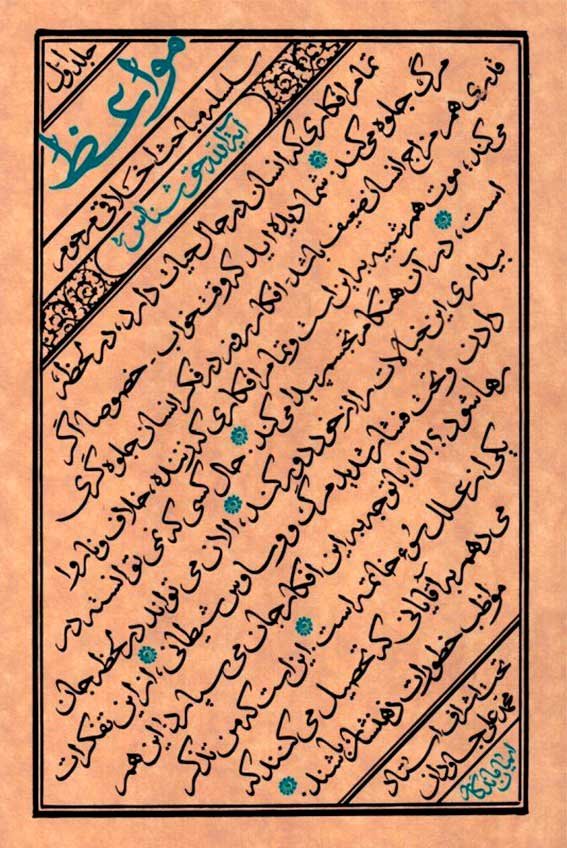 جلد اوّل
مواعظ
سلسله مباحث اخلاقی مرحوم
آیة الله حق شناس
تمام افکاری که انسان در حال حیات دارد، در لحظهٔ
مرگ جلوه می‌کند. شما دیده اید که وقت خواب - خصوصا اگر
قدری هم مزاج انسان ضعیف باشد، افکار روز در فکر انسان جلوه گری
می‌کند، موت هم شبیه به این است و تمام افکاری که زننده، خلاف و ناروا
است، در آن هنگام تجسم پیدا می‌کند. حال کسی که نمی توانسته در
بیداری این خیالات را از خود دور کند، الان می تواند در لحظه جان
دادن و تحت فشار شدید مرگ و وساوس شیطانی، از این تفکرات
رها شود؟! لذا با توجه به این افکار جان می سپارد! این هم
یکی از علل سُوء خاتمه است. این است که من تذکر
می دهم به آقایانی که تحصیل می کنند که
مواظب خطورات ذهنشان باشند.
تحت اشراف استاد
محمد علی جاودان